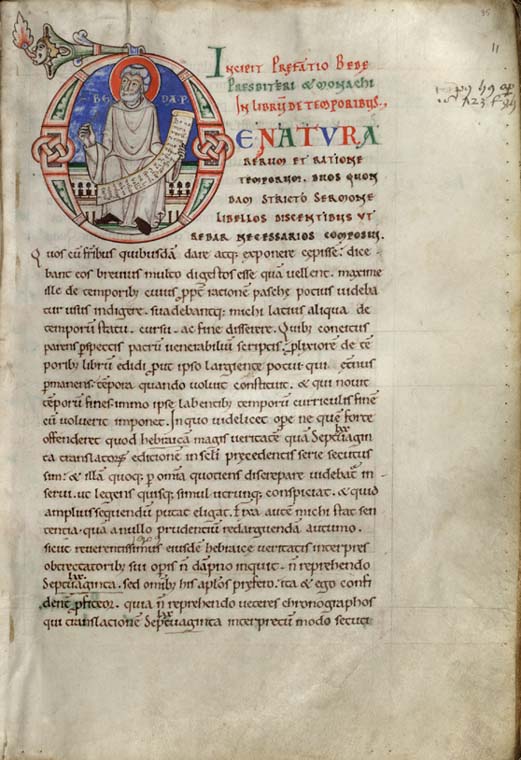 35
11
BE DA·P·
Incipit Prefatio Bede
Presbiteri & monachi
In librū de temporibus.,
DE NATVRA
rerum et ratione
temporum. duos quon
dam stricto sermone
libellos discentibus ut
rebar necessarios composui.
Quos cū frībus quibusdā dare atq; exponere cepissē: dice
bant eos brevius multo digestos esse quā vellent. maxime
ille de temporib; cuius ꝓpt̄ rationē pasche potius videba
tur usus indigere. suadebantq; michi latius aliqua de
temporū statu. cursu. ac fine disserere. Quib; coniectus
parens pspectis patrū venerabiliū scriptis. plixiorē de tē
porib; librū edidi put ipso largiente potui qui et̄nus
pmanens. tēpora quando voluit constituit. & qui novit
tēporū fines. immo ipse labentib; temporū curriculis finē
cū voluerit imponet. In quo videlicet ope ne quē forte
offenderet quod hebraicā magis veritatē quā Septuagin
lxx
ta translatorꝝ editionē in scł̄i precedentis serie secutus
sim: & illā quoq; p omnia quotiens discrepare videbat̄ in
serui. ut legens quisq; simul utrunq; conspiciat. & quid
amplius sequendū putat eligat. Fixa autē michi stat sen
tentia. quā a nullo prudentiū redarguendā autumo.
sicut reverentissimus eiusdē hebraice veritatis interpres
obtrectatorib; sui opis n̄ dāpno inquit. n̄ reprehendo
lxx
Septuaginta. sed omīb; his aplōs prefero. ita & ego confi
dent̄ pfiteor. quia n̄ reprehendo veteres chronographos
lxx
qui translationē Septuaginta interpretū modo secuti